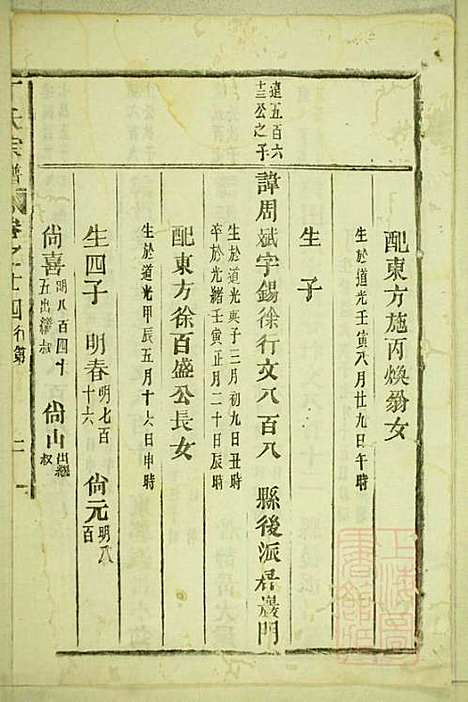 配東方施丙煥翁女
生於道光壬寅八月廿九日午時
生 子
道五百六
十三公之子
諱周斌字錫徐行文八百八 縣後派梧巖門
生於道光庚子三月初九日丑時
卒於光緒壬寅正月二十日辰時
配東方徐百盛公長女
生於道光甲辰五月十六日申時
生四子 明春明七百十六 尙元明八百
尙喜明八百四十五出繼叔 尙山出繼叔
氏宗譜 卷之十四行第